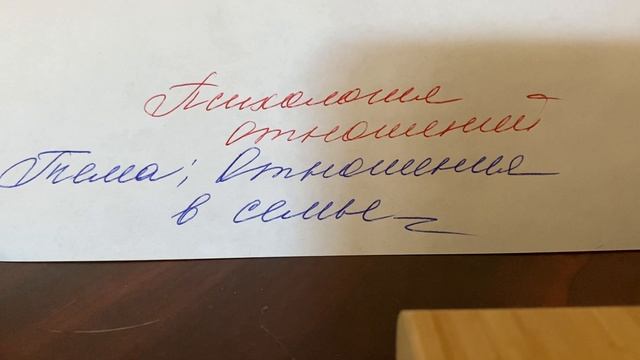 Психология
отношений
Тема; Отношения
в семье